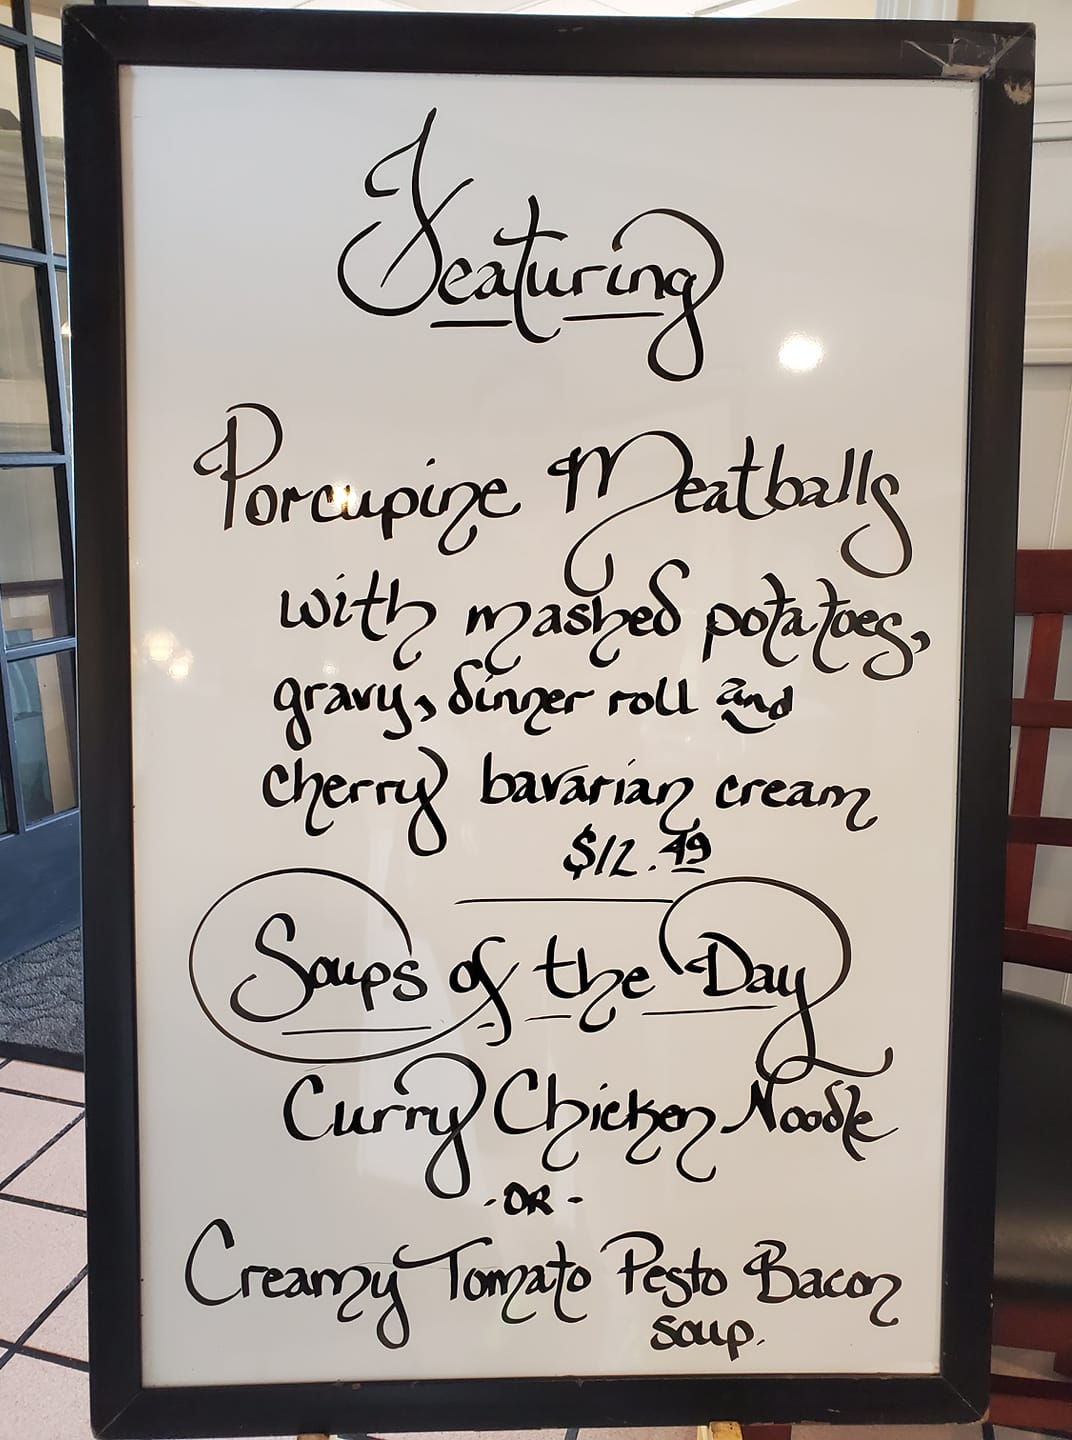 Featuring
Porcupine Meatballs
with mashed potatoes,
gravy, dinner roll and
cherry bavarian cream
$12.49
Soups of the Day
Curry Chicken Noodle
-OR-
Creamy Tomato Pesto Bacon
soup.